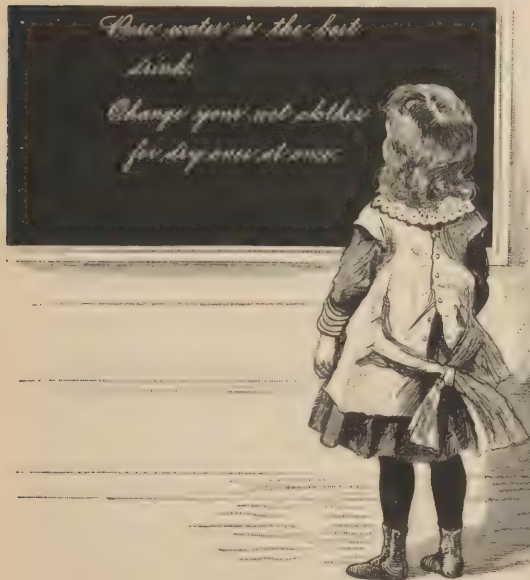 Pure water is the best
drink.
Change your wet clothes
for dry ones at once.